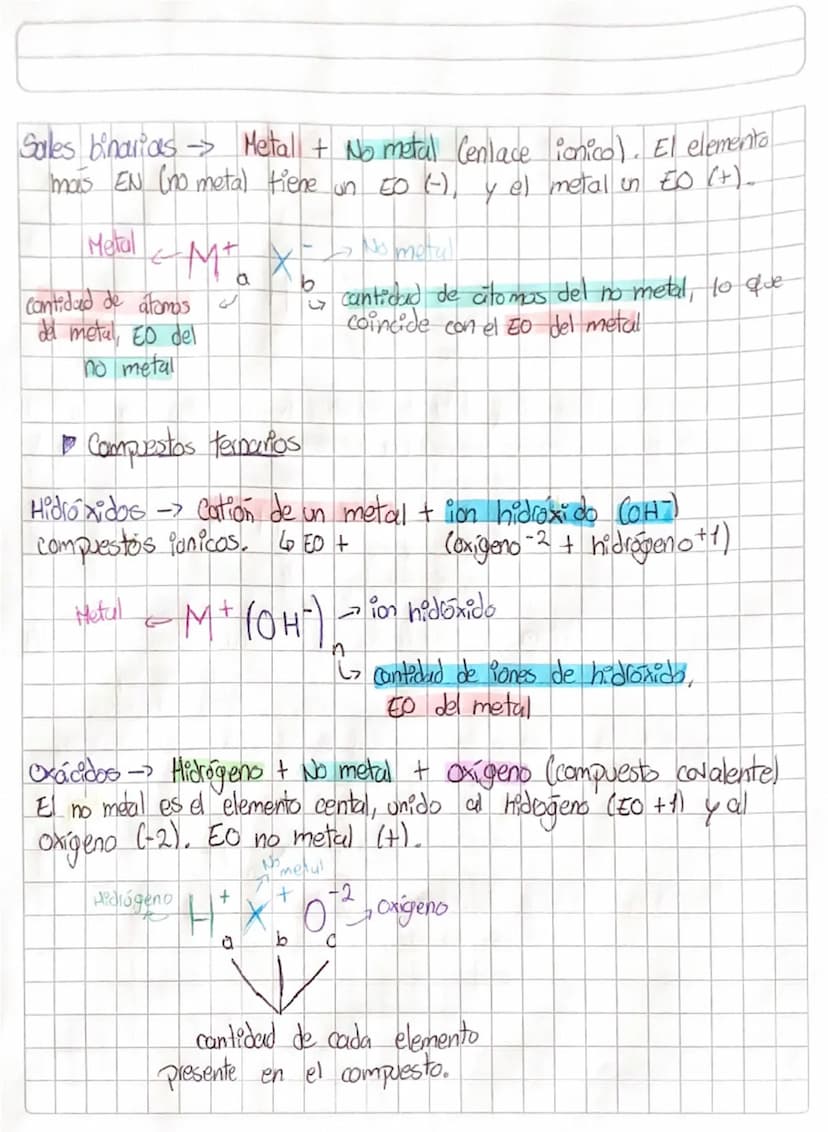 Sales binarias → Metal + No metal (enlace ionico). El elemento
más EN (no metal) tiene un EO (-), y el metal un EO (+).
Metal ← M⁺a X⁻b → No metal
cantidad de átomos
del metal, EO del
no metal
↳ cantidad de átomos del no metal, lo que
coincide con el EO del metal
Compuestos ternarios
Hidróxidos → Catión de un metal + ion hidróxido (OH⁻)
compuestos ionicos. ↳ EO + (oxígeno⁻² + hidrógeno⁺¹)
Metal ← M⁺(OH⁻)n → ion hidróxido
↳ cantidad de iones de hidróxido,
EO del metal
Oxácidos → Hidrógeno + No metal + oxígeno (compuesto covalente)
El no metal es el elemento cental, unido al hidogeno (EO +1) y al
oxígeno (-2). EO no metal (+).
No metal
Hidrógeno ← H⁺a X⁺b O⁻²c → oxígeno
cantidad de cada elemento
presente en el compuesto.